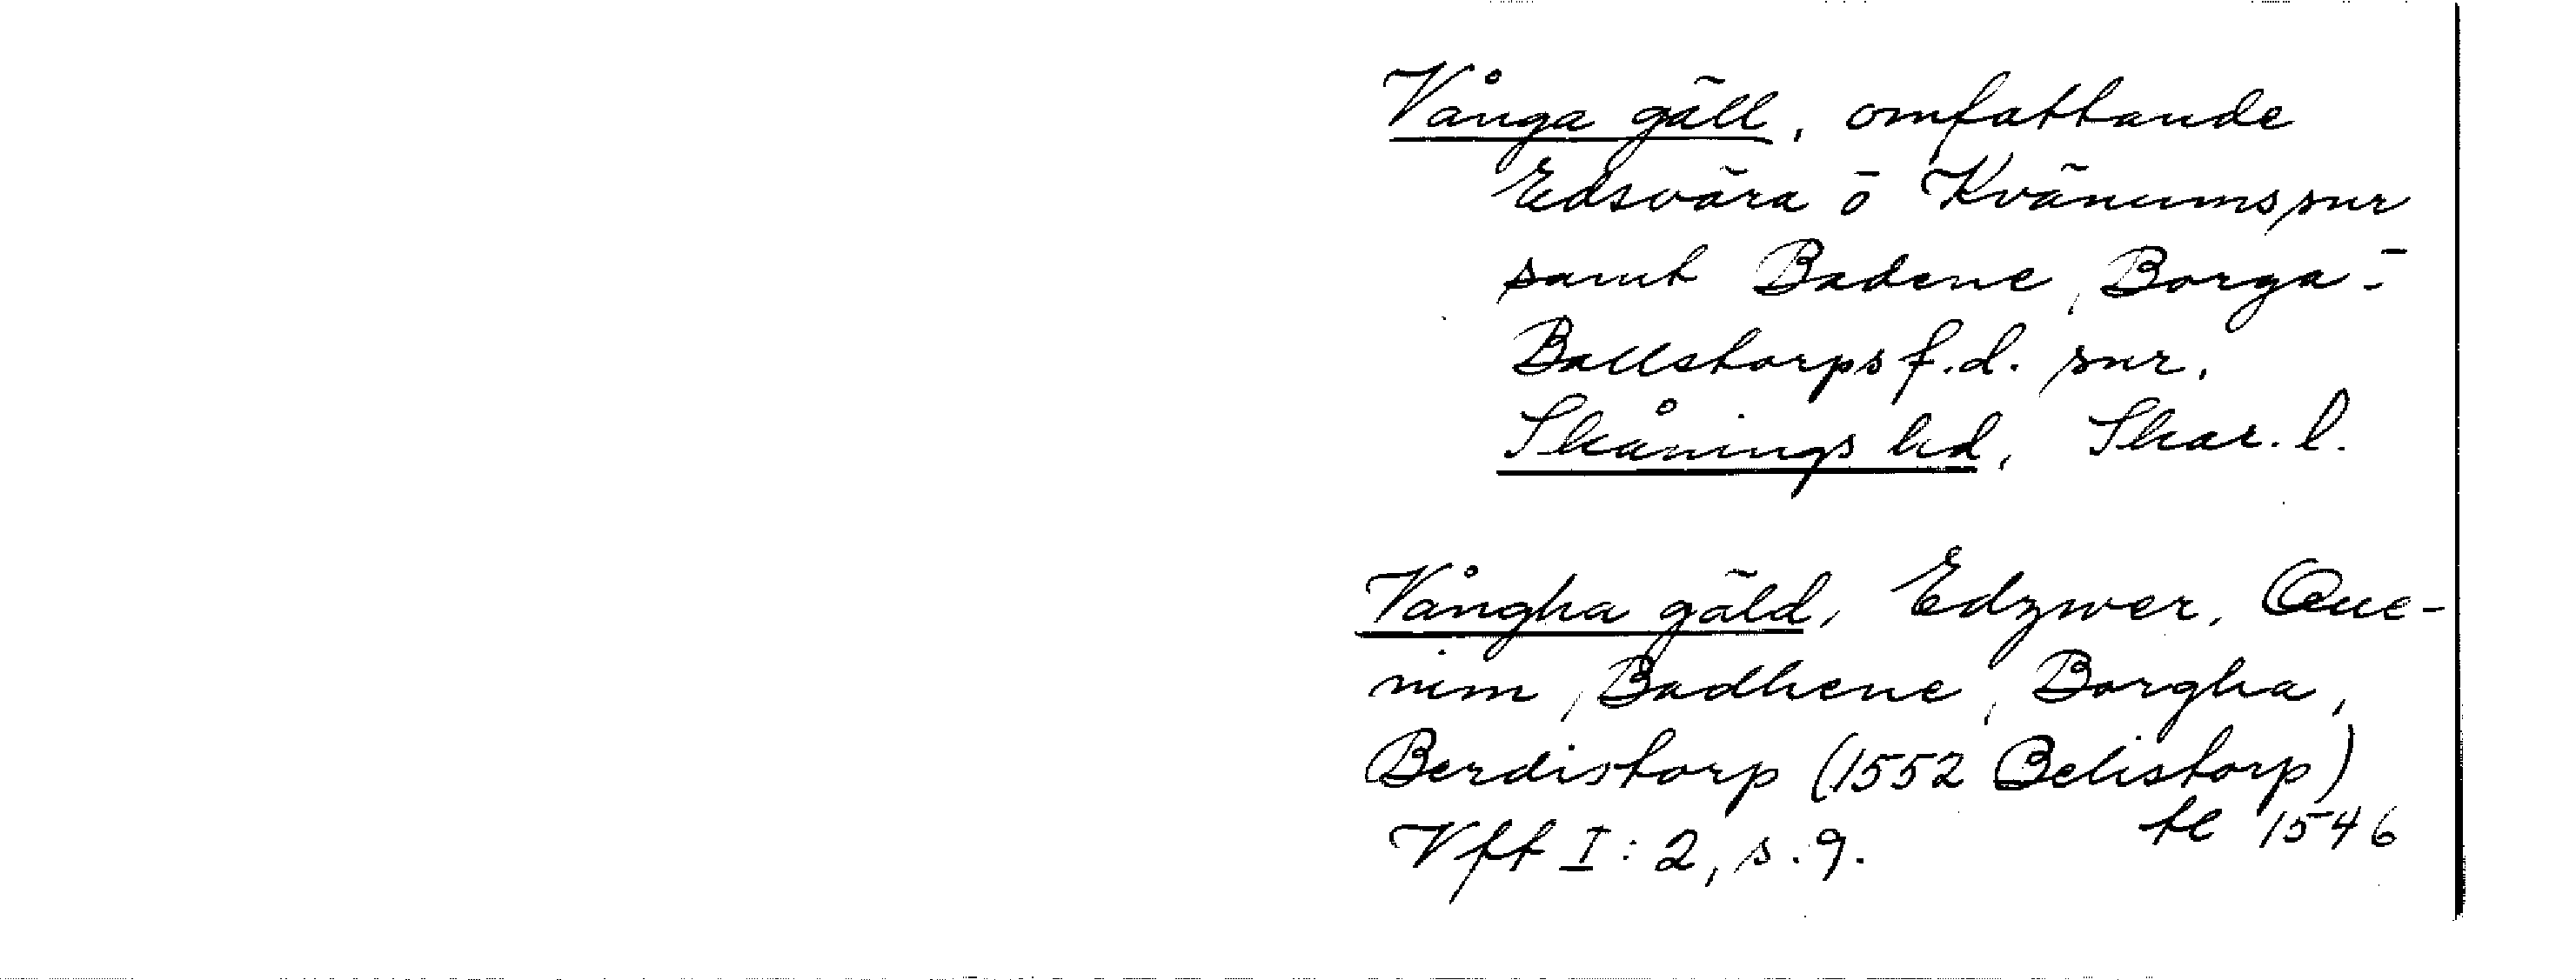 Vånga gäll, omfattande
Edsvära ō Kvänums snr
samt Badene, Borga ō
Ballstorps f.d. snr.
Skånings hd, Skar. l.
Vångha gäld, Edzwer, Que-
nim, Badhene, Borgha,
Berdistorp (1552 Belistorp)
tl 1546
Vft I: 2, s. 9.